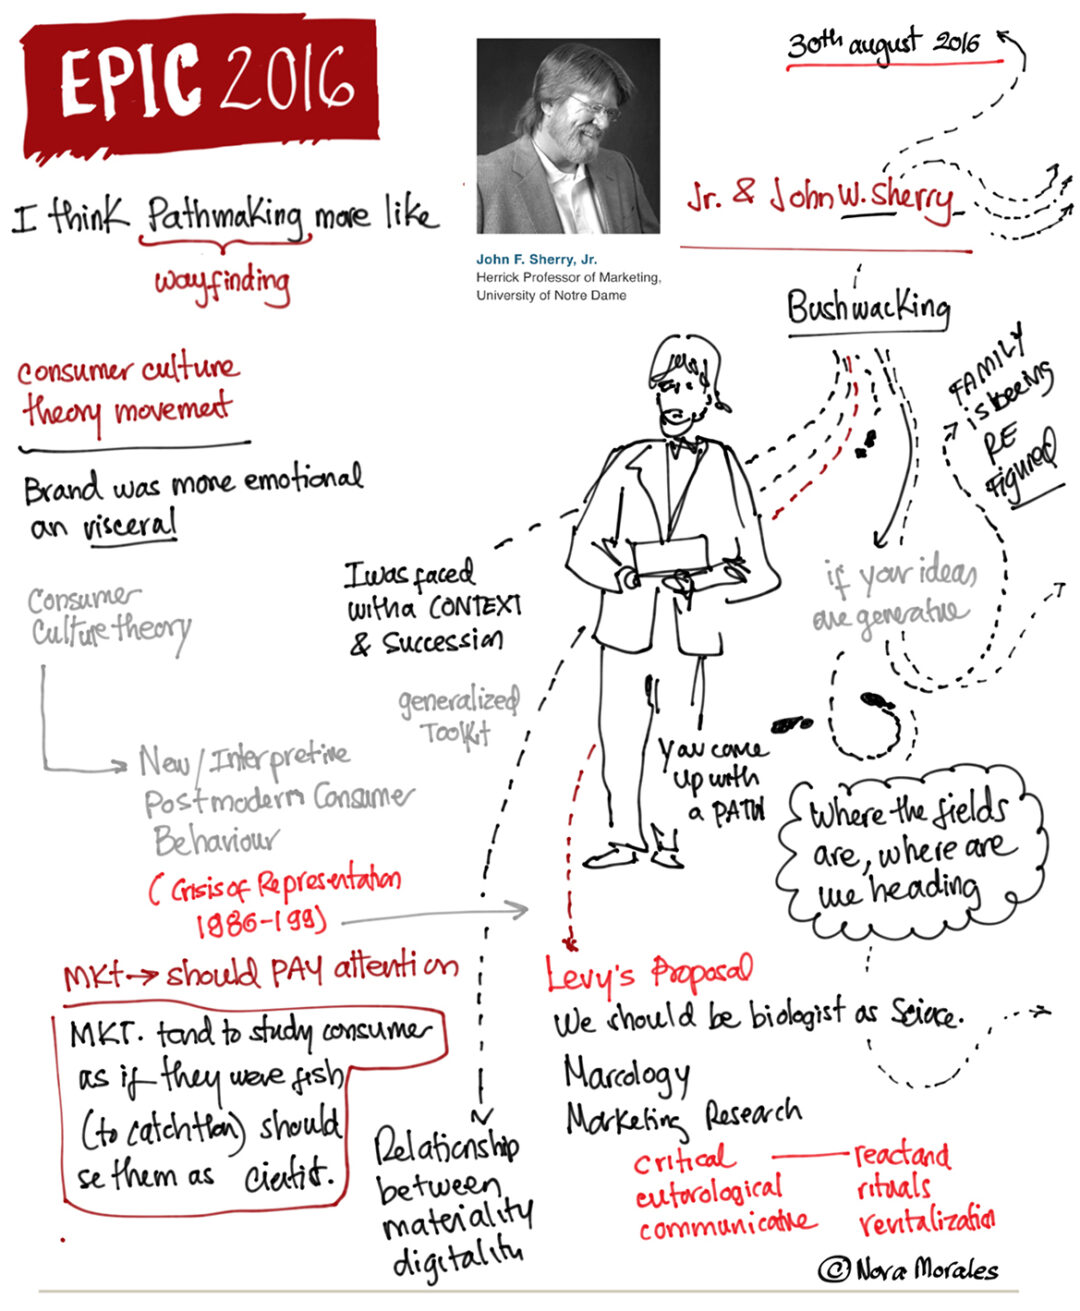 EPIC 2016
30th august 2016
I think Pathmaking more like
wayfinding
John F. Sherry, Jr.
Herrick Professor of Marketing,
University of Notre Dame
Jr. & John W. Sherry
Bushwacking
FAMILY
is beeing
RE
Figured
consumer culture
theory movement
Brand was more emotional
an visceral
I was faced
with a CONTEXT
& Succession
if your ideas
are generative
Consumer
Culture theory
generalized
Toolkit
New/Interpretive
Postmodern Consumer
Behaviour
(Crisis of Representation
1986-199)
You come
up with
a PATH
Where the fields
are, where are
we heading
MKt→ should PAY attention
MKT. tend to study consumer
as if they were fish
(to catch them) should
se them as
Relationship
between
materiality
digitality
Levy's Proposal
We should be biologist as Science.
Marcology
Marketing Research
critical — react and
rituals
communicative revitalization
© Nora Morales